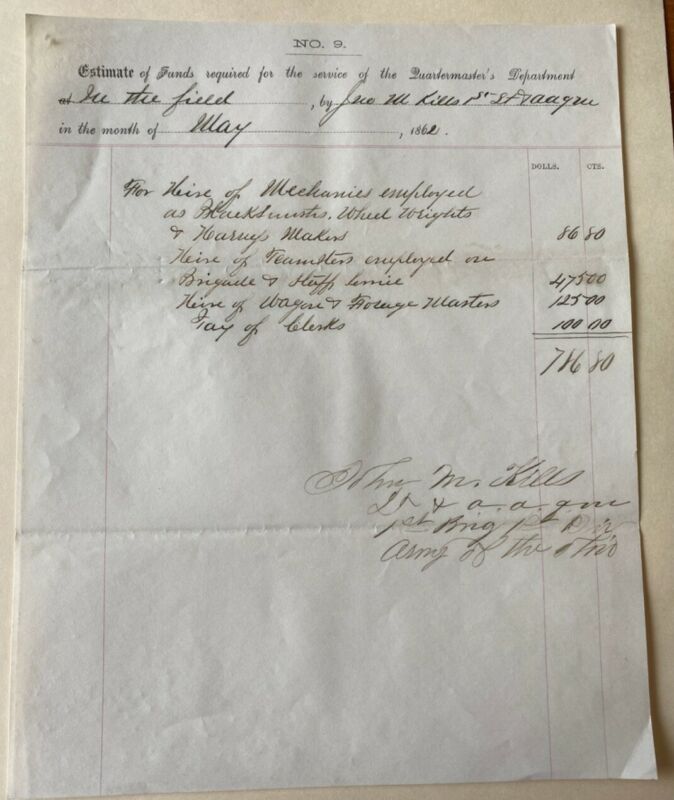 NO. 9.
Estimate of Funds required for the service of the Quartermaster's Department
at In the field, by Jno M Kills 1st Lt & aaqm
in the month of May, 1862.
DOLLS. CTS.
For Heire of Mechanics employed
as Blacksmiths, Wheel Wrights
& Harness Makers 86 80
Heire of Teamsters employed on
Brigade & Staff Service 475 00
Heire of Wagon & Forage Masters 125 00
Pay of Clerks 100 00
786 80
John M. Kills
Lt & a.a.qm
1st Brig 1st Div
Army of the Ohio